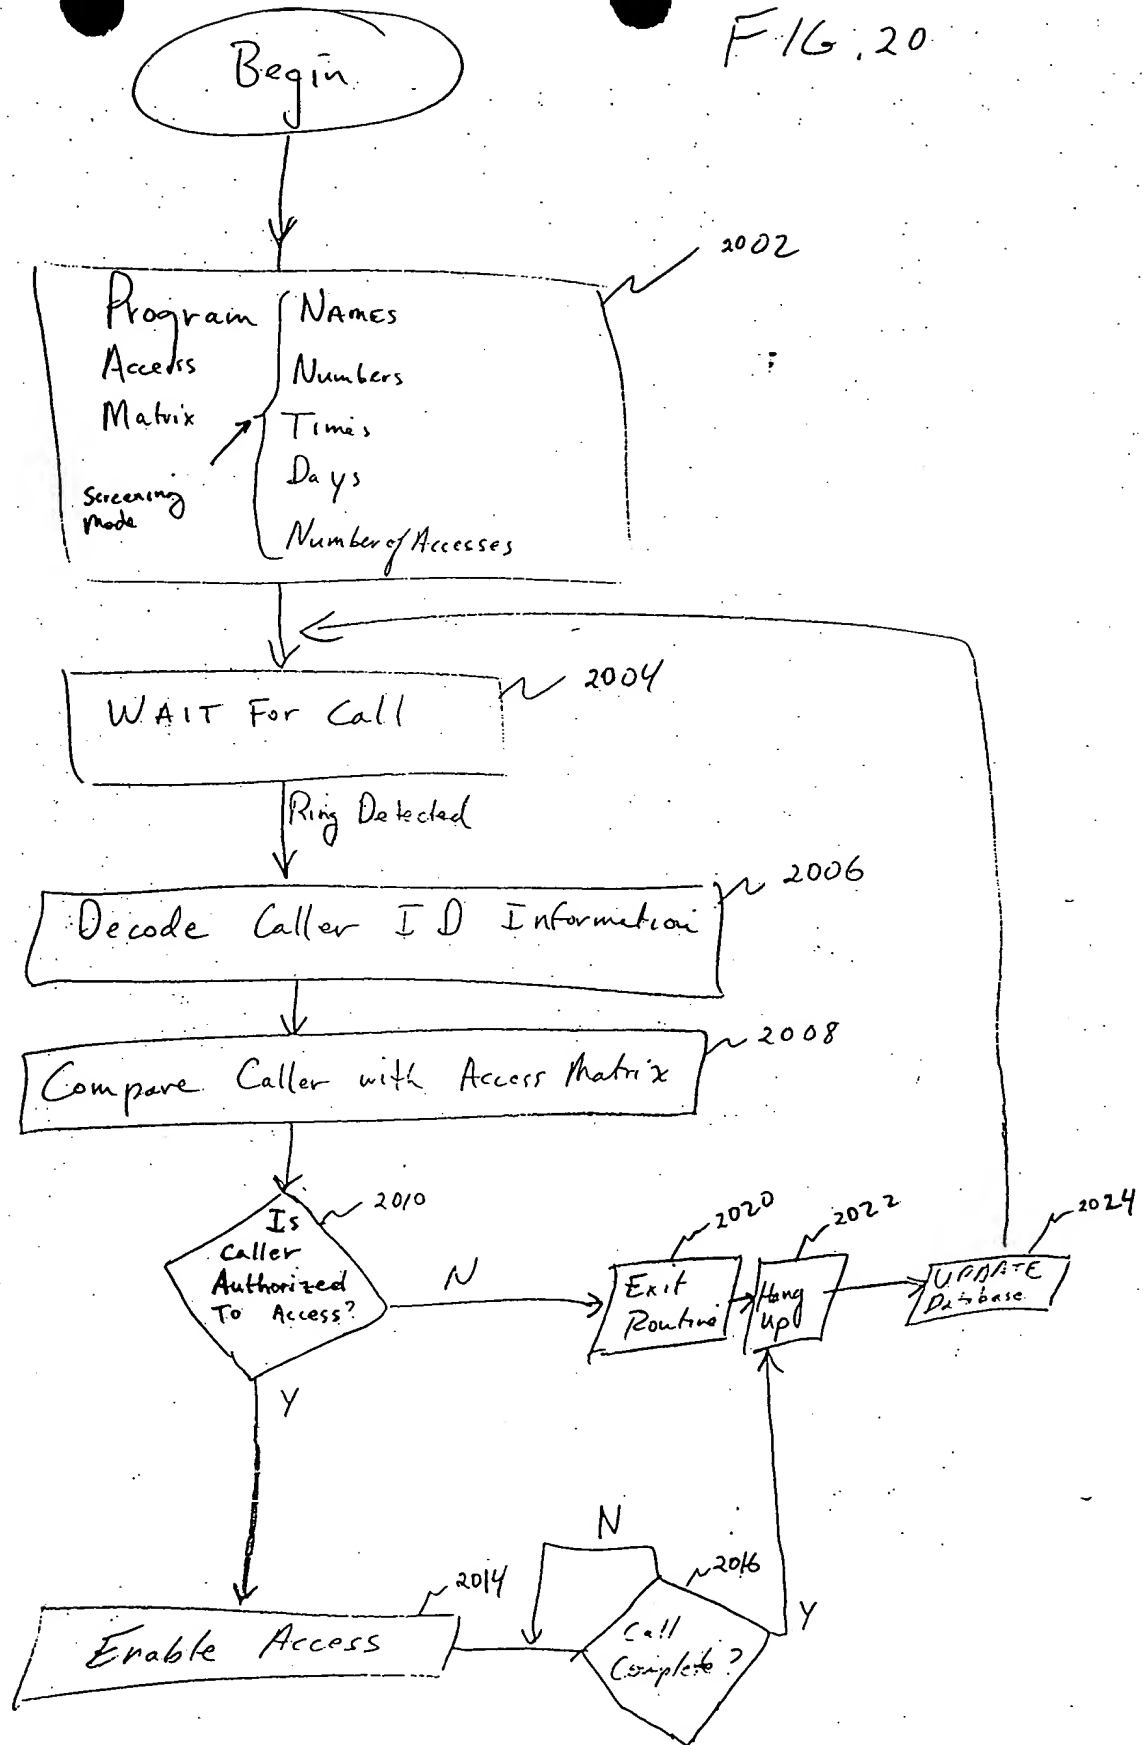 FIG. 20
Begin
2002
Program
Access
Matrix
Screening
Mode
NAMES
Numbers
Times
Days
Number of Accesses
2004
WAIT For Call
Ring Detected
2006
Decode Caller ID Information
2008
Compare Caller with Access Matrix
2010
Is
Caller
Authorized
To Access?
N
Y
2020
Exit
Routine
2022
Hang
Up
2024
UPDATE
Database
2014
Enable Access
N
2016
Call
Complete?
Y